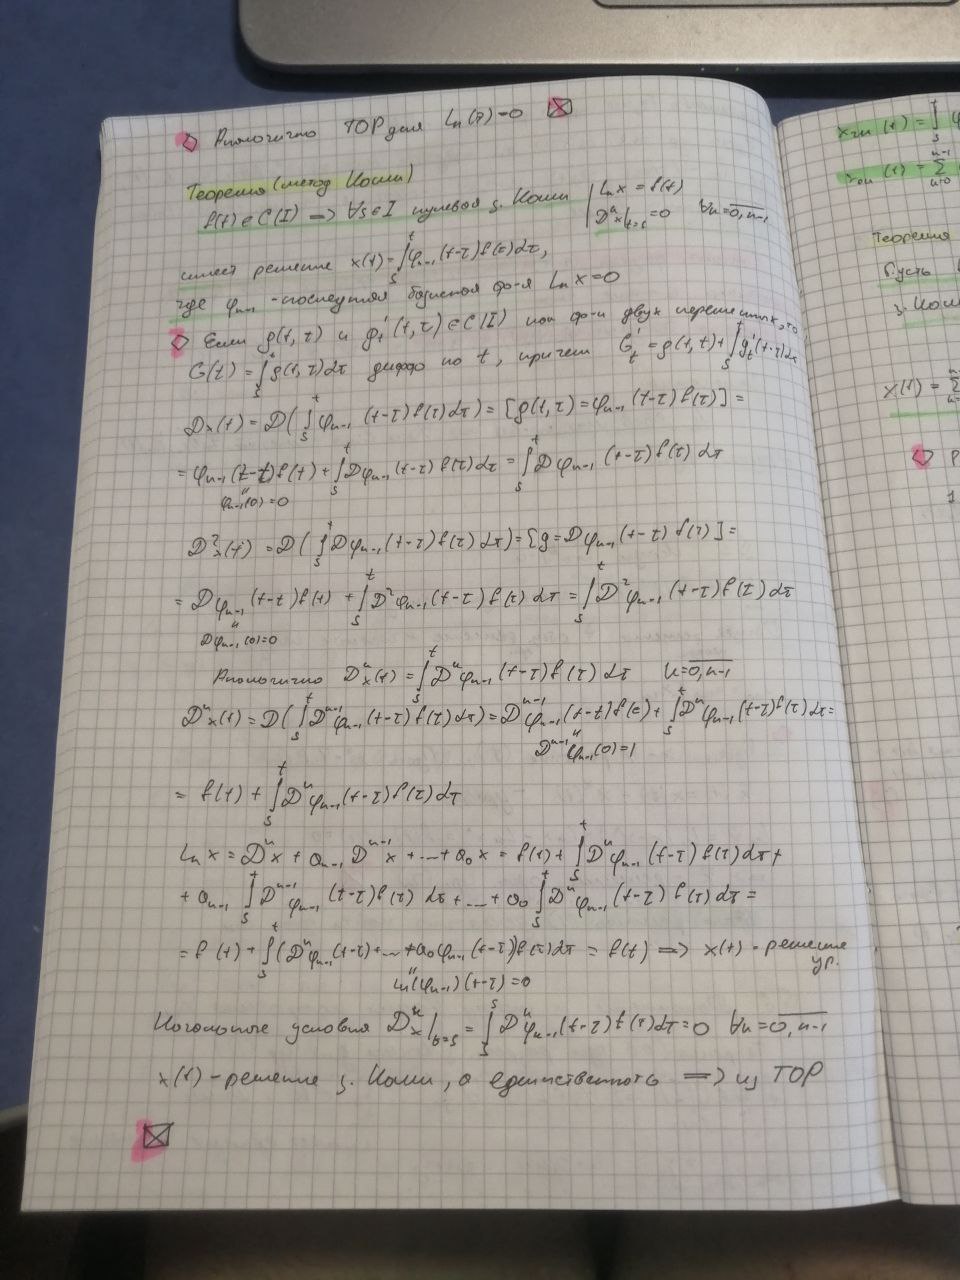 Аналогично ТОР для Lₙ(λ)=0
Теорема (метод Коши)
f(t)∈C(I) ⟹ ∀s∈I нулевая з. Коши { Lₙx = f(t)
Dᵏx|ₜ₌ₛ = 0 ∀k=0,n-1
имеет решение x(t) = ∫ₛᵗ φₙ₋₁(t-τ)f(τ)dτ,
где φₙ₋₁ - последняя базисная ф-я Lₙx=0
Если g(t,τ) и g'ₜ(t,τ)∈C(I) как ф-и двух переменных, то
G(t) = ∫ₛᵗ g(t,τ)dτ дифф по t, причем G'ₜ = g(t,t) + ∫ₛᵗ g'ₜ(t-τ)dτ
Dx(t) = D(∫ₛᵗ φₙ₋₁(t-τ)f(τ)dτ) = [g(t,τ) = φₙ₋₁(t-τ)f(τ)] =
= φₙ₋₁(t-t)f(t) + ∫ₛᵗ Dφₙ₋₁(t-τ)f(τ)dτ = ∫ₛᵗ Dφₙ₋₁(t-τ)f(τ)dτ
φₙ₋₁(0)=0
D²x(t) = D(∫ₛᵗ Dφₙ₋₁(t-τ)f(τ)dτ) = [g = Dφₙ₋₁(t-τ)f(τ)] =
= Dφₙ₋₁(t-t)f(t) + ∫ₛᵗ D²φₙ₋₁(t-τ)f(τ)dτ = ∫ₛᵗ D²φₙ₋₁(t-τ)f(τ)dτ
Dφₙ₋₁(0)=0
Аналогично Dᵏx(t) = ∫ₛᵗ Dᵏφₙ₋₁(t-τ)f(τ)dτ k=0,n-1
Dⁿx(t) = D(∫ₛᵗ Dⁿ⁻¹φₙ₋₁(t-τ)f(τ)dτ) = Dⁿ⁻¹φₙ₋₁(t-t)f(t) + ∫ₛᵗ Dⁿφₙ₋₁(t-τ)f(τ)dτ =
Dⁿ⁻¹φₙ₋₁(0)=1
= f(t) + ∫ₛᵗ Dⁿφₙ₋₁(t-τ)f(τ)dτ
Lₙx = Dⁿx + aₙ₋₁Dⁿ⁻¹x + ... + a₀x = f(t) + ∫ₛᵗ Dⁿφₙ₋₁(t-τ)f(τ)dτ +
+ aₙ₋₁ ∫ₛᵗ Dⁿ⁻¹φₙ₋₁(t-τ)f(τ)dτ + ... + a₀ ∫ₛᵗ Dⁿφₙ₋₁(t-τ)f(τ)dτ =
= f(t) + ∫ₛᵗ (Dⁿφₙ₋₁(t-τ) + ... + a₀φₙ₋₁(t-τ))f(τ)dτ = f(t) ⟹ x(t) - решение
ур.
Lₙ(φₙ₋₁)(t-τ)=0
Начальные условия Dᵏx|ₜ₌ₛ = ∫ₛˢ Dᵏφₙ₋₁(t-τ)f(τ)dτ = 0 ∀k=0,n-1
x(t) - решение з. Коши, а единственность ⟹ из ТОР
Теорема
Пусть
з. Коши
x(t) = Σ